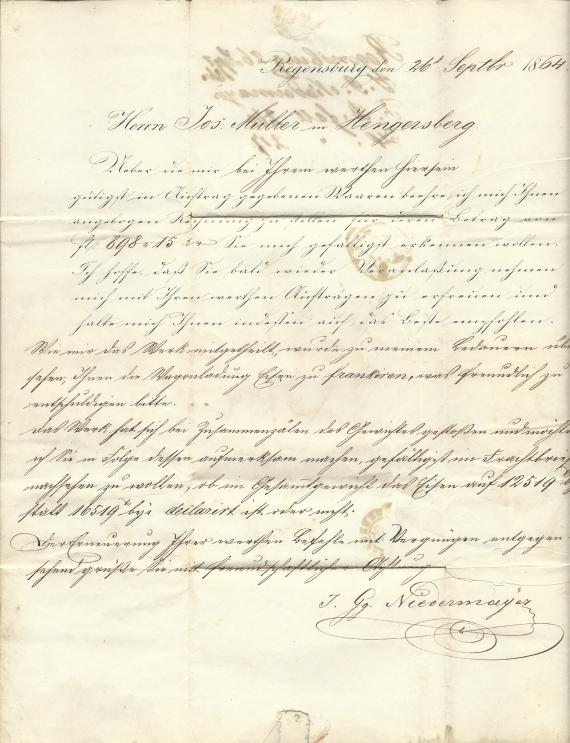 Regensburg den 26t Septbr 1864.
Herrn Jos. Müller in Hengersberg.
Ueber die mir bei Ihrem werthen Hiersein
gütigst in Auftrag gegebenen Waaren beehre ich mich Ihnen
angebogen Rechnung zu stellen für deren Betrag von
fl. 898 15 Sie mich gefälligst erkennen wollen.
Ich hoffe, daß Sie bald wieder Veranlaßung nehmen
mich mit Ihren werthen Aufträgen zu erfreuen und
halte mich Ihnen indeßen auf das Beste empfohlen.
Wie mir das Werk mitgetheilt, wurde zu meinem Bedauern über
sehen, Ihnen die Wagonladung Eisen zu frankiren, was freundlich zu
entschuldigen bitte.
Das Werk hat sich bei Zusammenzälen des Gewichtes gestoßen und möchte
ich Sie in Folge dessen aufmerksam machen, gefälligst im Frachtbrief
nachsehen zu wollen, ob im Gesamtgewicht das Eisen auf 12519
statt 16519 declarirt ist oder nicht;
Der Erneuerung Ihrer werthen Befehle mit Vergnügen entgegen
sehend grüße Sie mit freundschaftlicher
J. Gg. Niedermayer
2